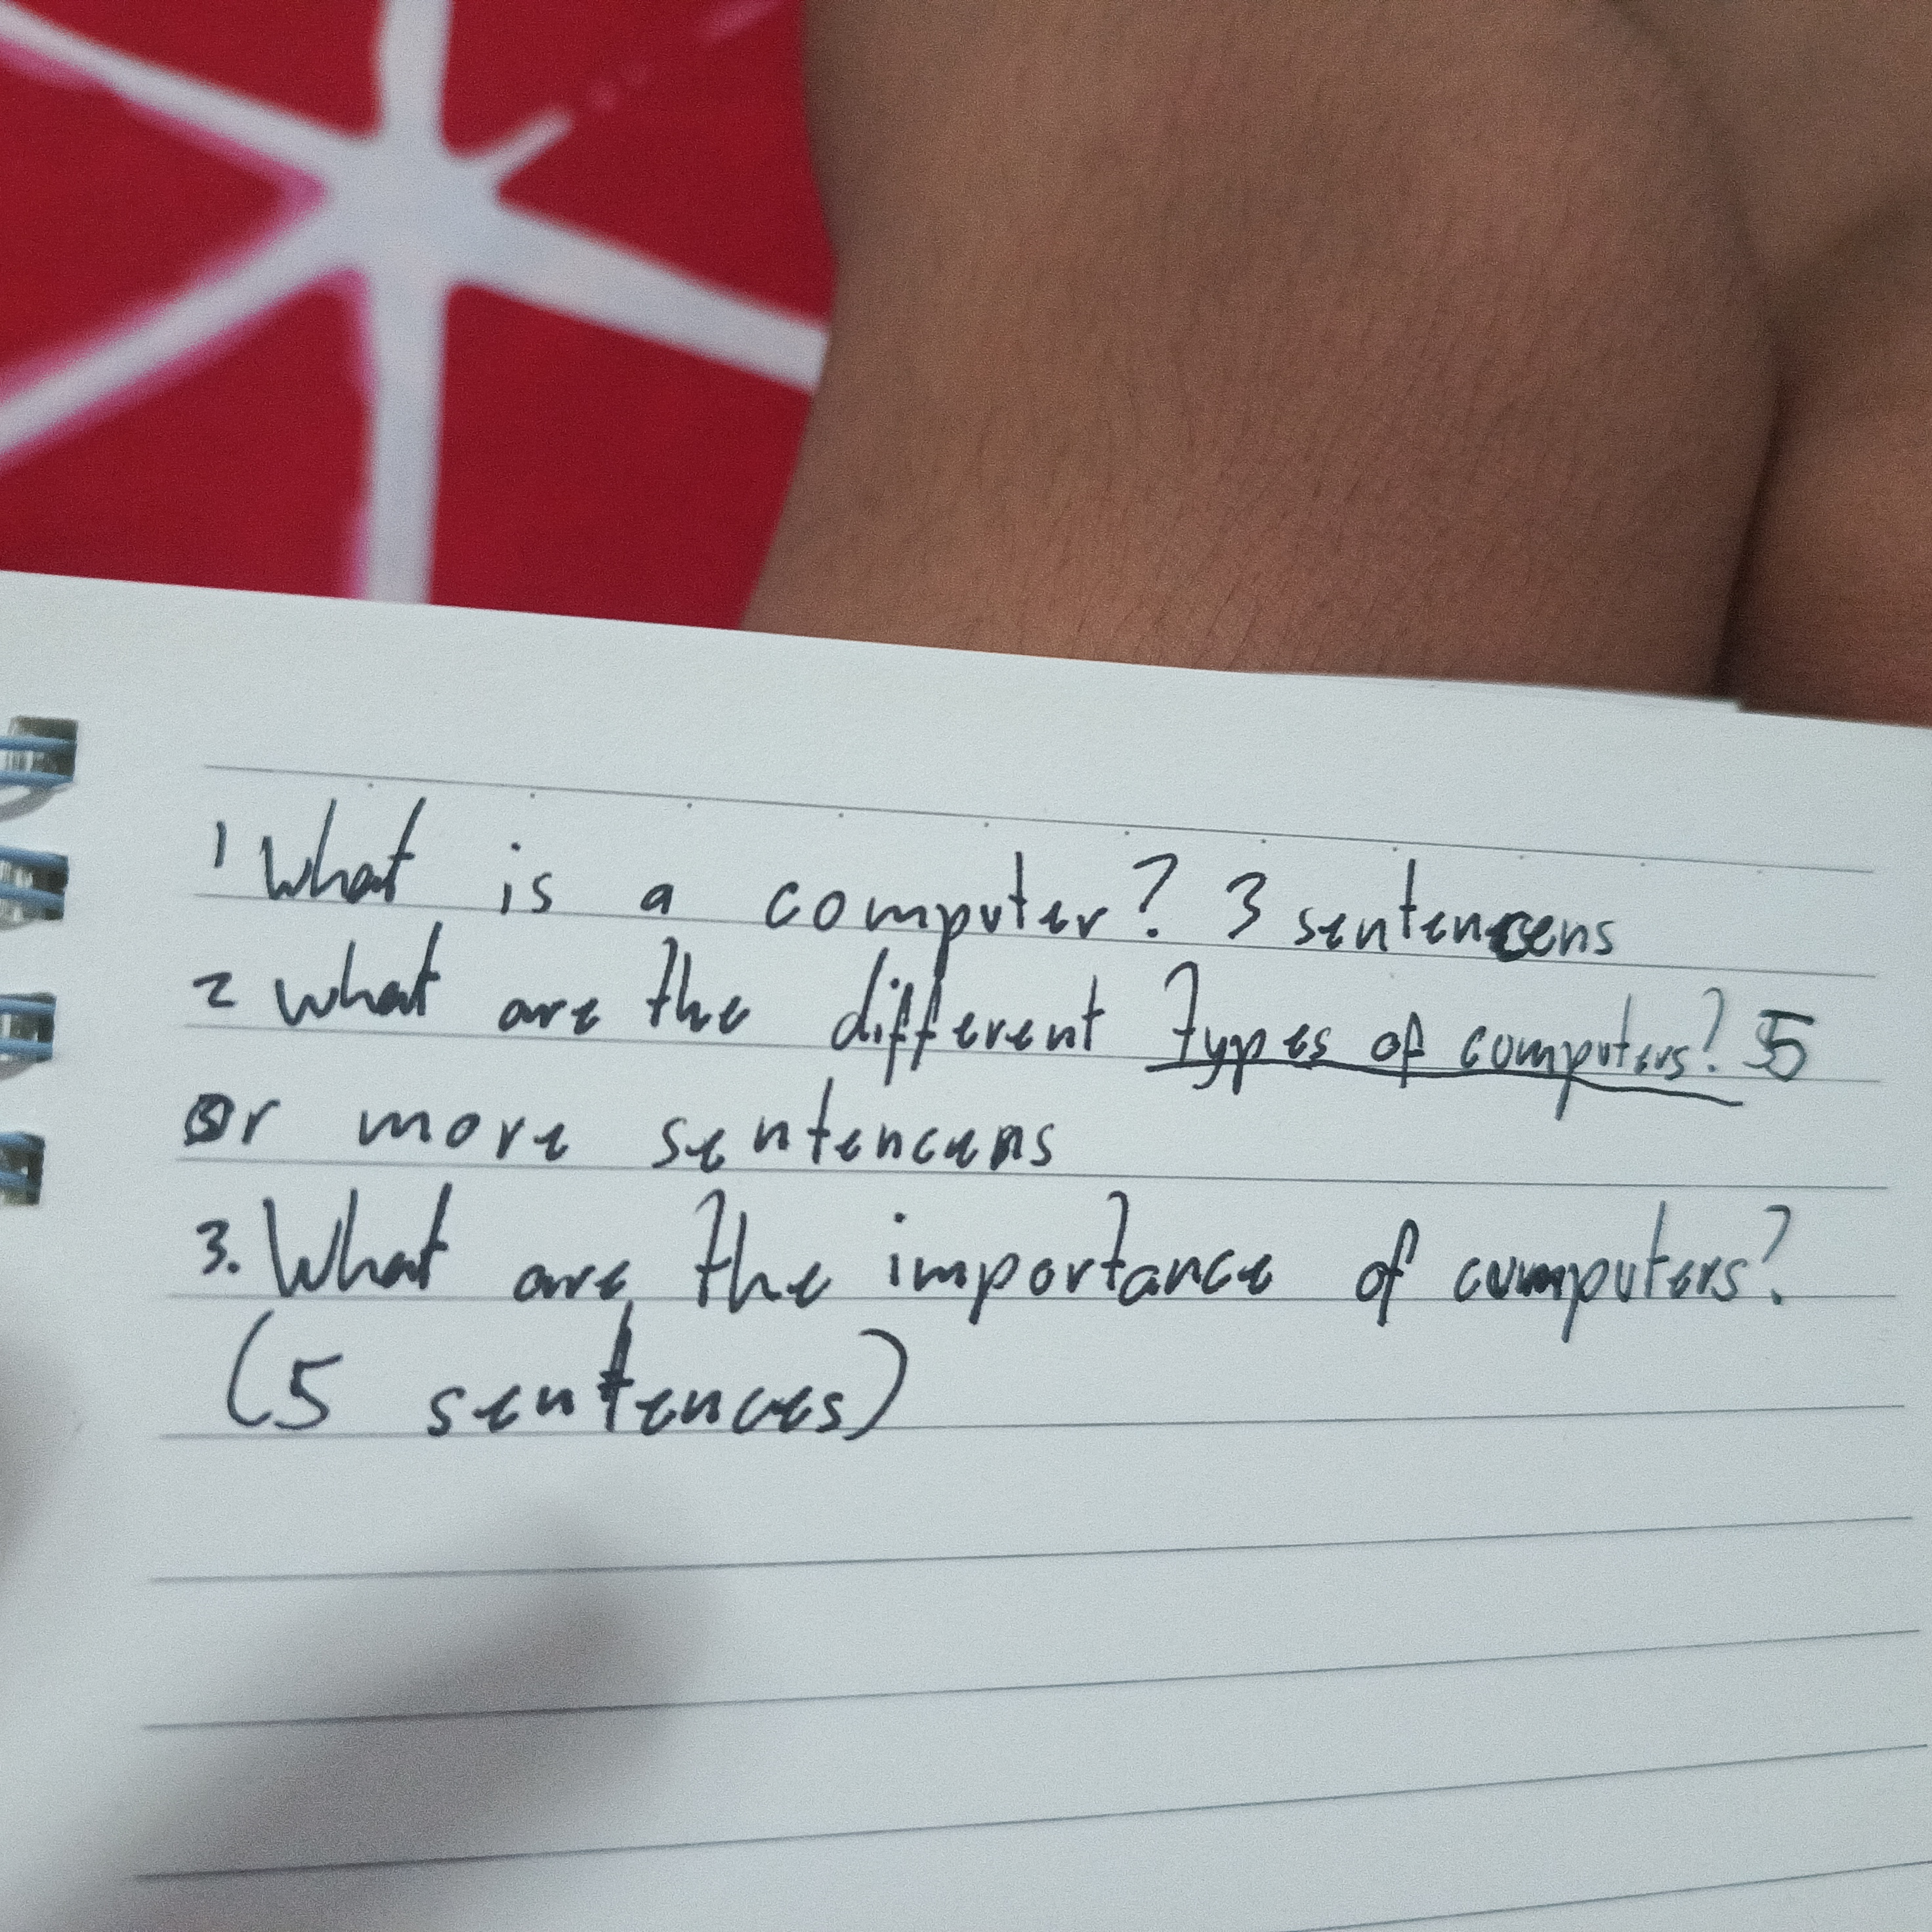 1 What is a computer? 3 sentencens
2 what are the different types of computers? 5
or more sentencens
3. What are the importance of computers?
(5 sentences)